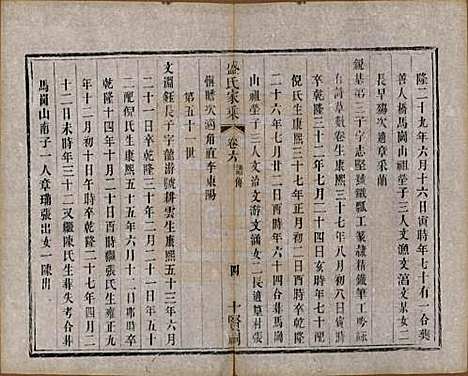 隆二十九年六月十六日寅時年七十有一合葬
善人橋馬崗山祖塋子三人文漁文葵女二
長早殤次適章采蘭
銳基第三子字志堅號鐵瓢工篆隸精鐵筆工吟詠
有詩草數卷生康熙三十七年八月初三日寅時
卒乾隆三十二年十二月初一日酉時年七十配
倪氏生康熙三十七年正月初二日酉時卒乾隆
二十六年七月廿二日酉時年六十四合葬馬崗
山祖塋子三人文淵文游文涵女二長適
張
次適甪直李東陽
盛氏家乘
卷六
四
第五十一世
文淵鈺長子字龍
號耕雲生康熙五十三年六月
二十一日卒乾隆三十年二月二十一日年五十
二配倪氏生康熙五十五年六月二十
日
時卒
乾隆十四年十月二十日酉時繼張氏生雍正九
年十二月初十日子時卒乾隆二十七年四月二
十二日未時年三十二又繼陳氏生葬失考合葬
馬崗山南子一人章
張出女一陳出